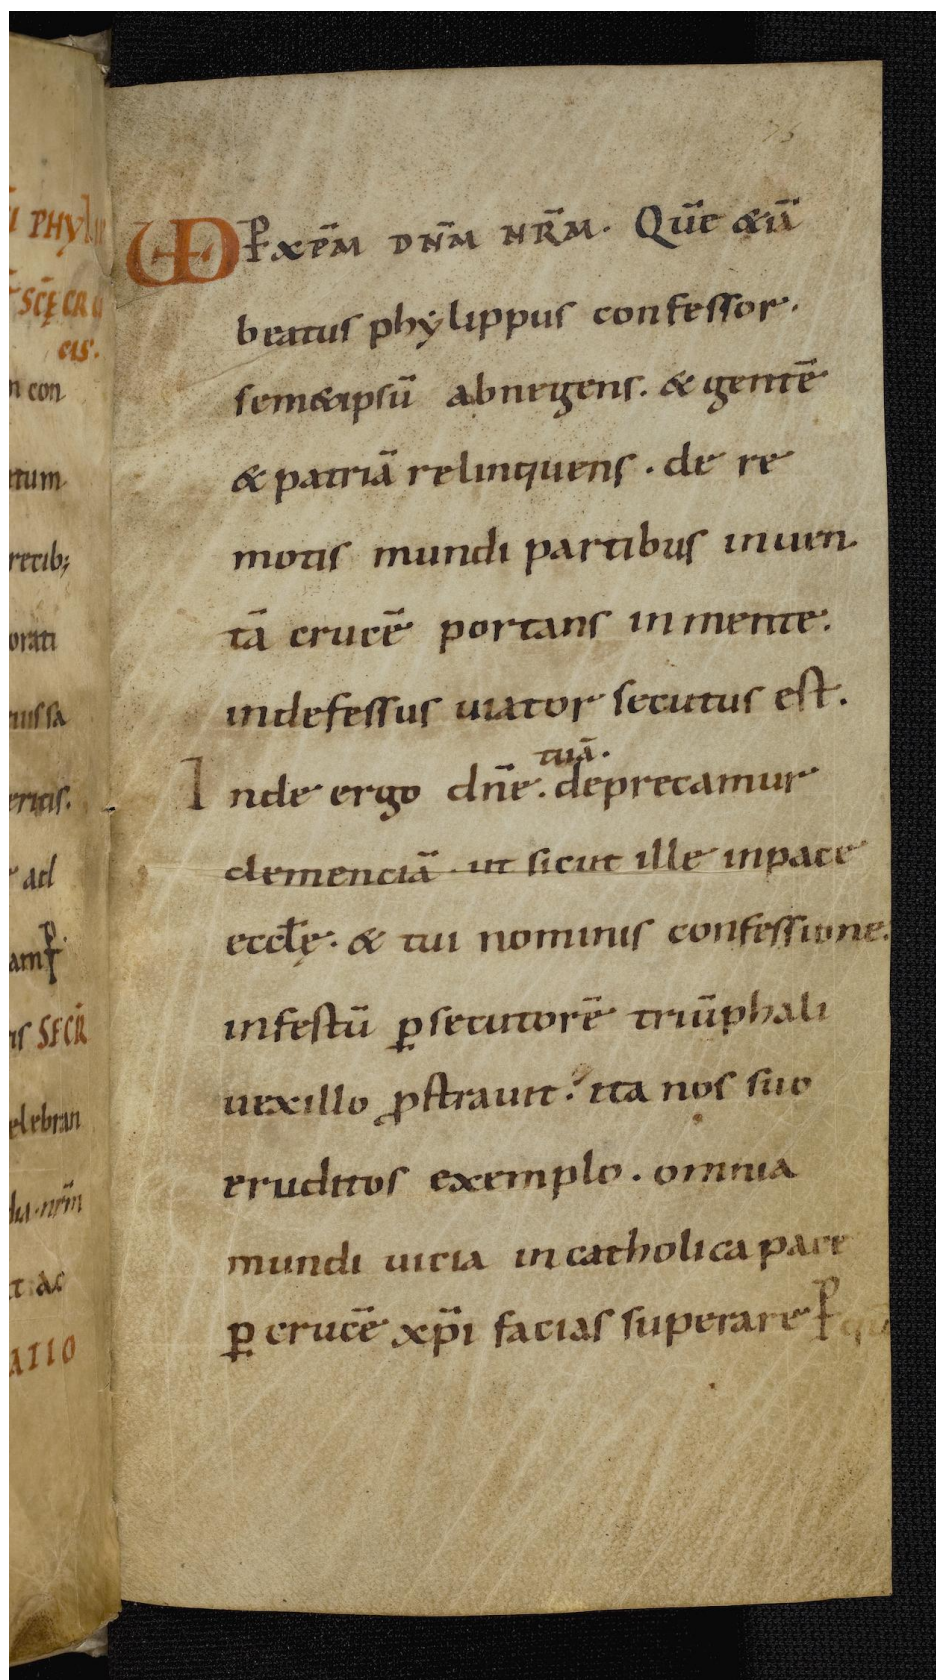 ı PHẎLIP
SC̄Ę CRV
cis.
n con
etum
recib;
orati
nussa
eritis.
ad
am P
is SECR̄
elebran
da. nr̄m
t ac
ATIO
VD P xp̄m DN̄M NR̄M. Que᷑ &ū
beatus phẏlippus confessor.
sem&ipsū abnegens. & gentē
& patriā relinquens. de re
motis mundi partibus inuen
tā crucē portans in mente.
indefessus uiator secutus est.
tuā.
Inde ergo dn̄e. deprecamur
clemenciā. ut sicut ille inpace
eccłę. & tui nominis confessione.
infestū ꝑsecutorē triūphali
uexillo ꝓstrauit. ita nos suo
eruditos exemplo. omnia
mundi uicia in catholica pace
ꝑ crucē xp̄i facias superare P qū